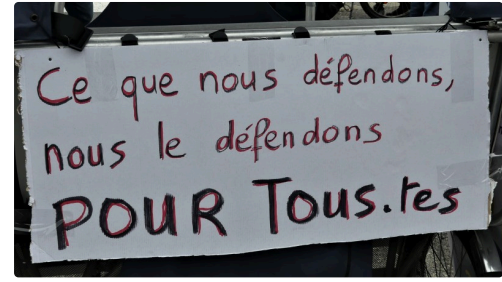 Ce que nous défendons,
nous le défendons
POUR Tous.tes